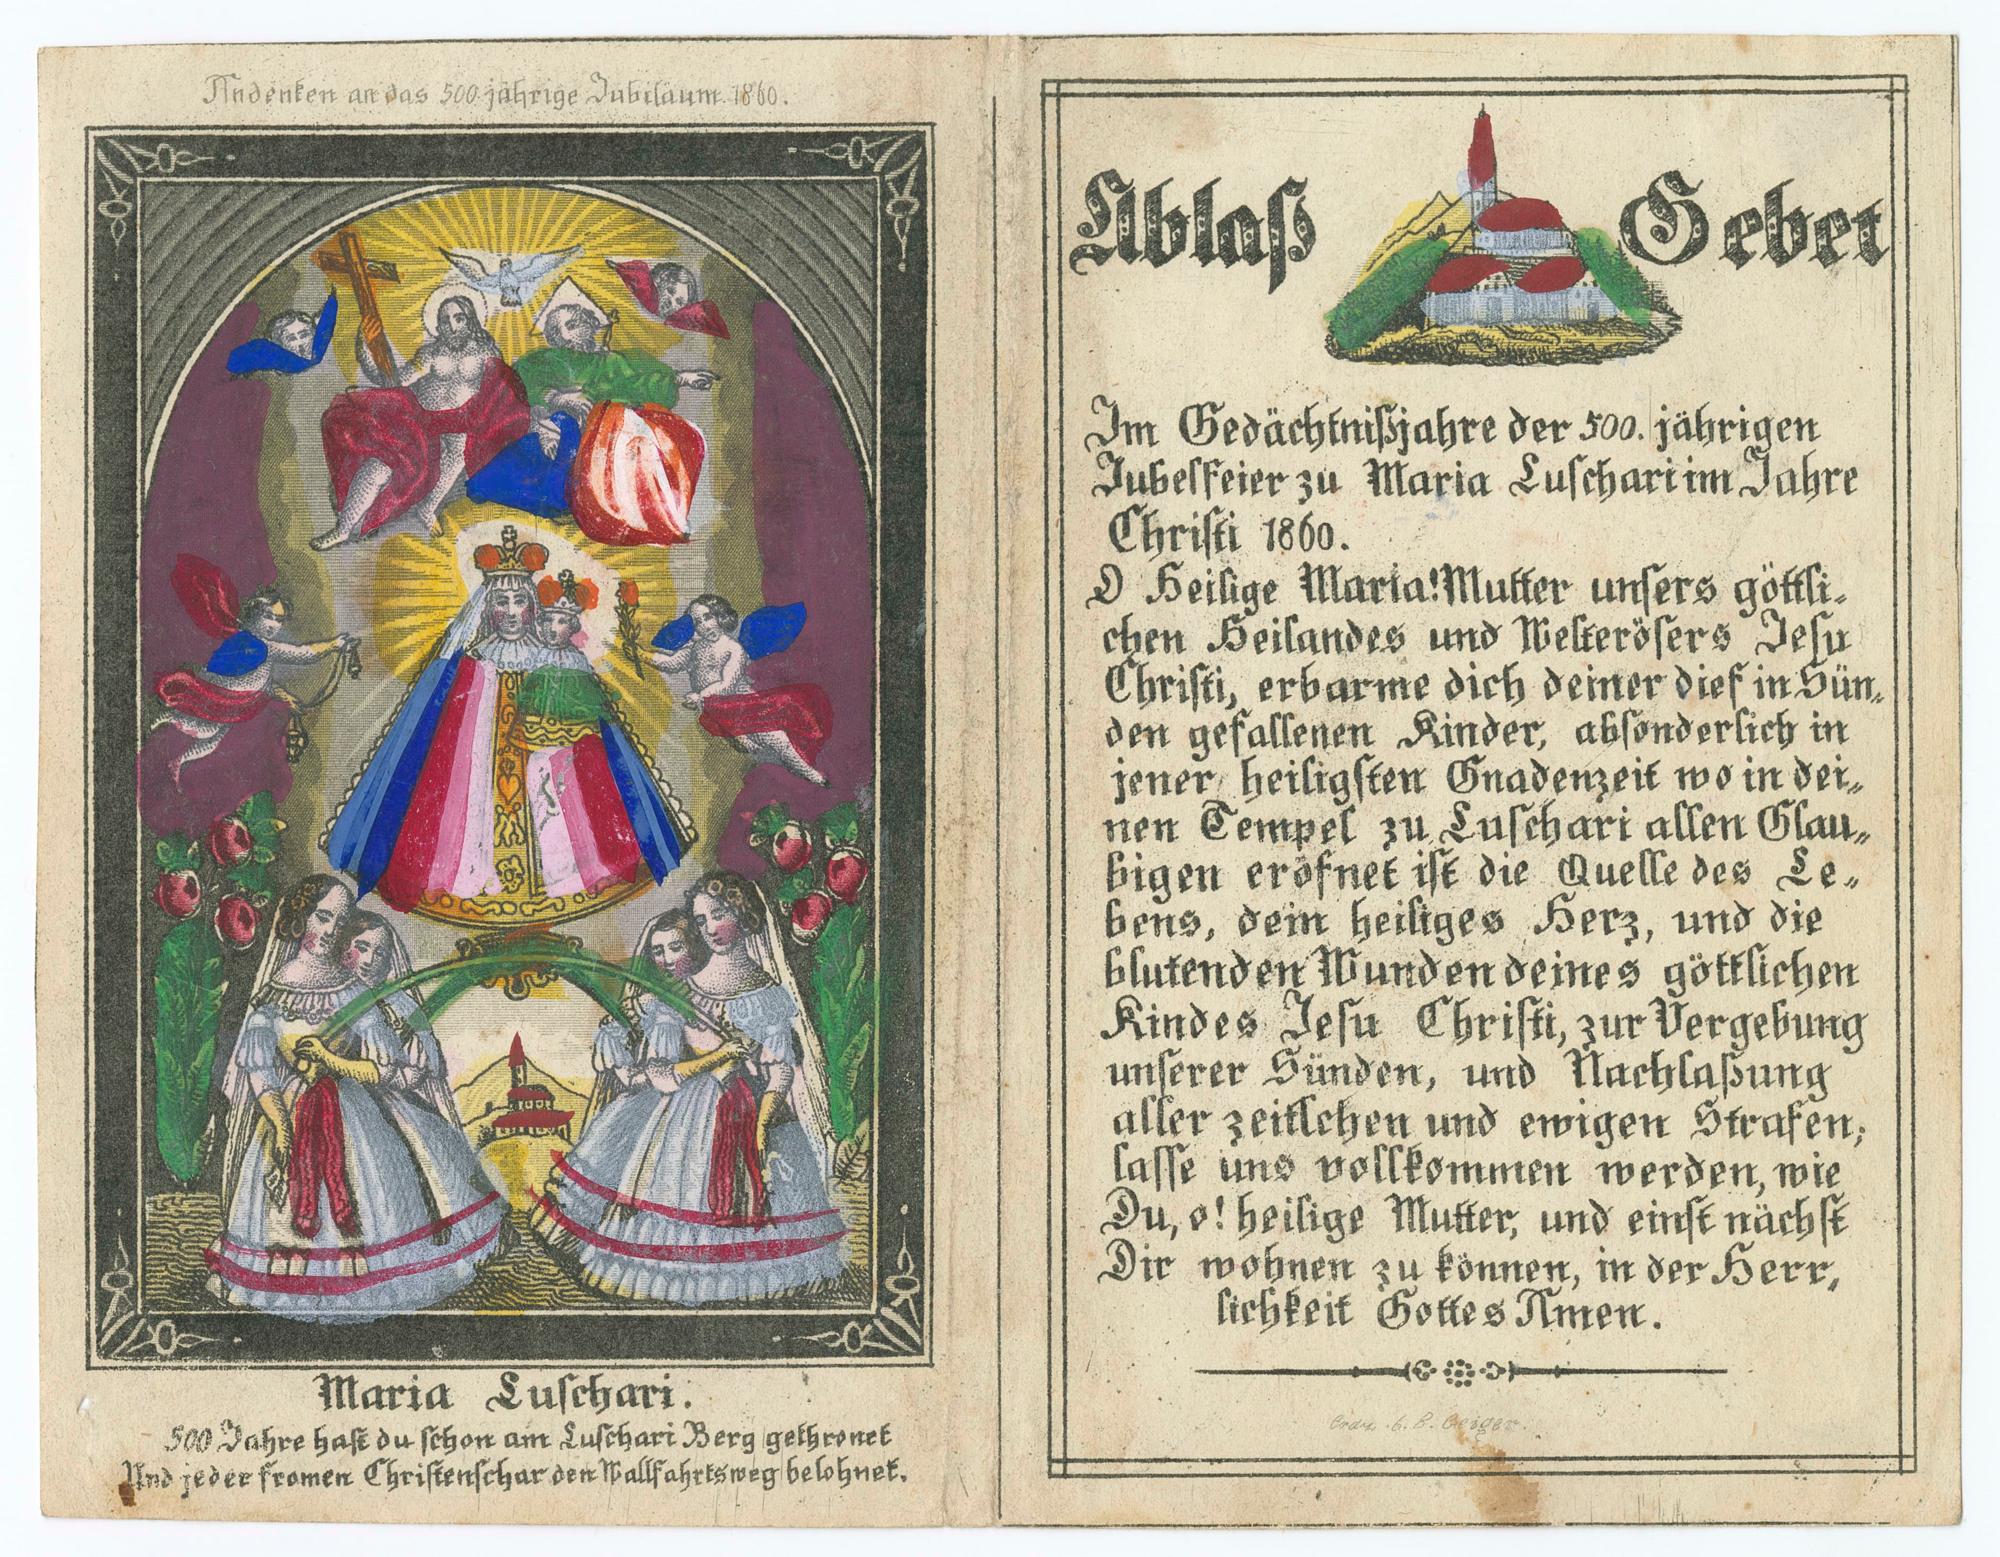 Andenken an das 500 jährige Jubiläum 1860.
Maria Luschari.
500 Jahre hast du schon am Luschari Berg gethronet
Und jeder fromen Christenschar den Wallfahrtsweg belohnet.
Ablaß Gebet
Im Gedächtnißjahre der 500. jährigen
Jubelfeier zu Maria Luschari im Jahre
Christi 1860.
O Heilige Maria! Mutter unsers göttli-
chen Heilandes und Welterösers Jesu
Christi, erbarme dich deiner dief in Sün-
den gefallenen Kinder, absonderlich in
jener heiligsten Gnadenzeit wo in dei-
nen Tempel zu Luschari allen Glau-
bigen eröfnet ist die Quelle des Le-
bens, dein heiliges Herz, und die
blutenden Wunden deines göttlichen
Kindes Jesu Christi, zur Vergebung
unserer Sünden, und Nachlaßung
aller zeitlchen und ewigen Strafen;
lasse uns vollkommen werden, wie
Du, o! heilige Mutter, und einst nächst
Dir wohnen zu können, in der Herr-
lichkeit Gottes Amen.